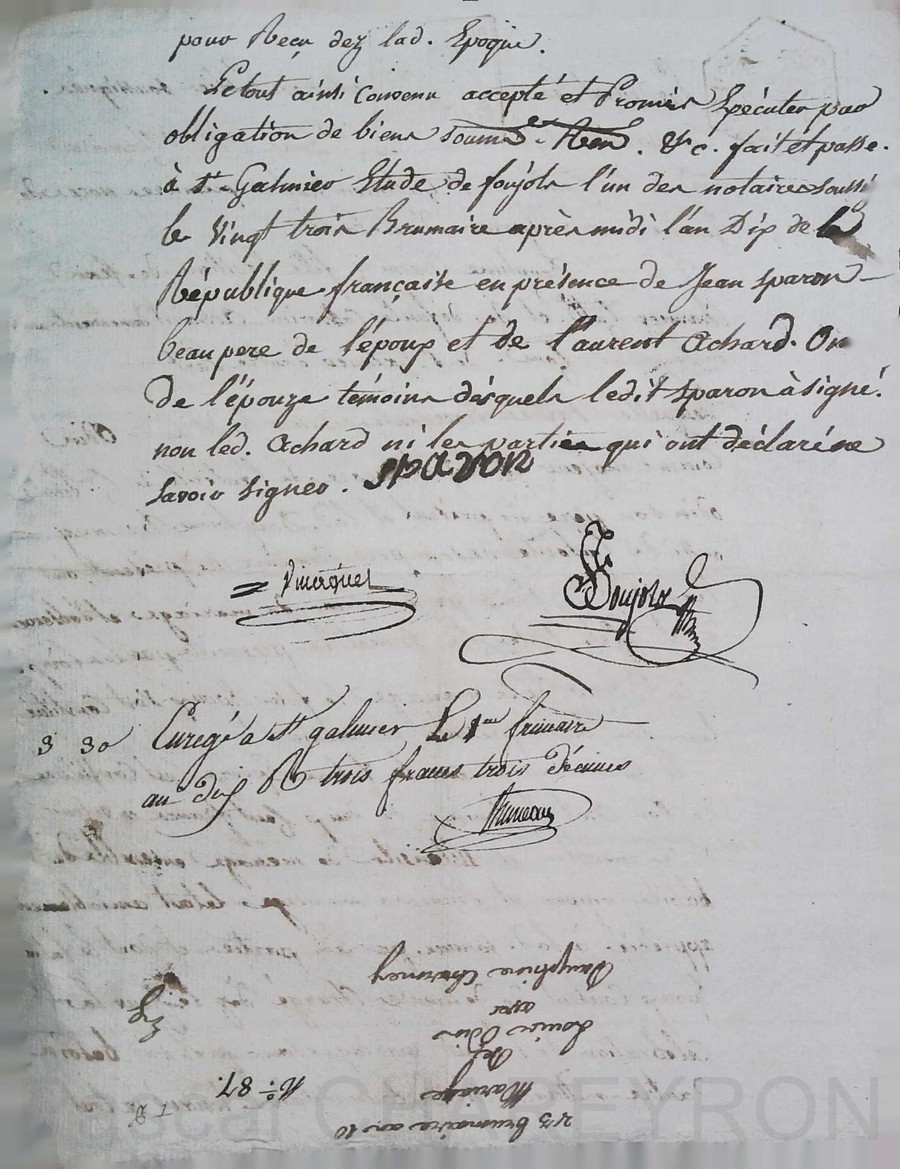 pour Reçu dez lad. Epoque.
Letout ainsi Convenu accepté et Promis Exécuter par
obligation de biens soumis.on Ren. &c. fait et passé.
à St. Galmier Etude de foujols l'un des notaires soussi
le Vingt trois Brumaire après midi l'an Dix de la
République française en présence de Jean sparon
beaupere de l'époux et de Laurent achard. On
de l'épouze témoins désquels ledit sparon à signé.
non led. achard ni les parties qui ont déclaré ne
savoir signer. sparon
Foujols
3 30 Enregé a St galmier Le 1er frimaire
an dix R trois francs trois décimes
23 brumaire an 10
Mariage No. 87.
de
Louis Odin
avec
Dauphine
Pascal CHAREYRON